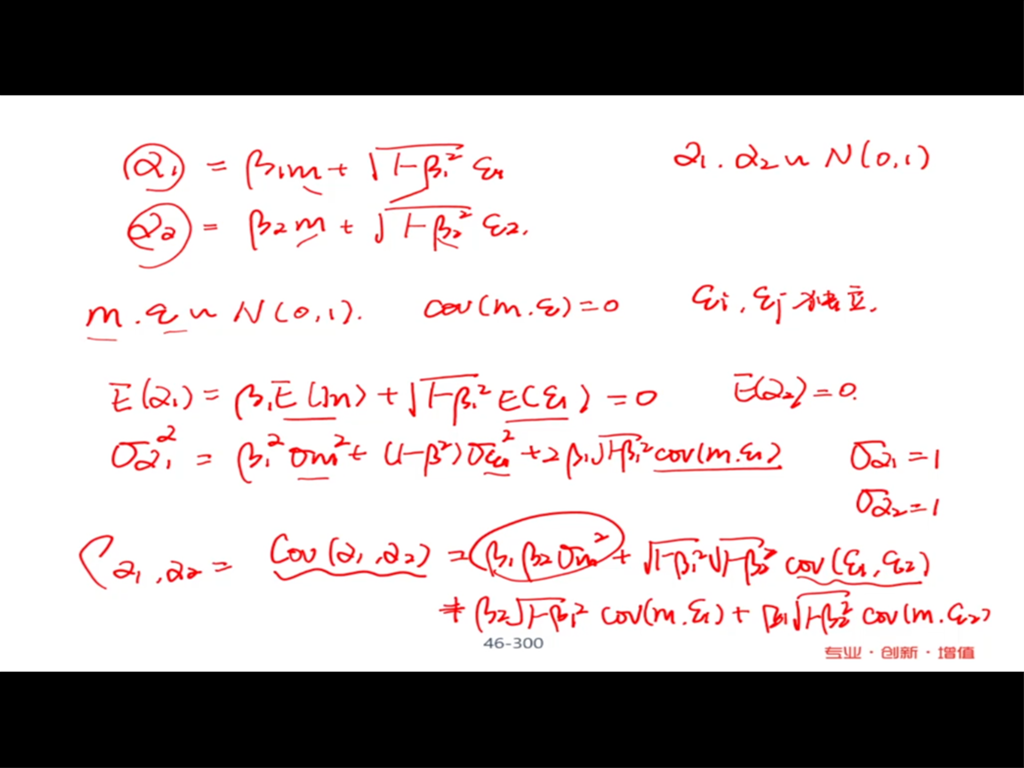 α₁ = β₁m + √(1-β₁²) ε₁
α₁, α₂ ~ N(0,1)
α₂ = β₂m + √(1-β₂²) ε₂.
m, ε ~ N(0,1). cov(m, ε) = 0 εi, εj 独立.
E(α₁) = β₁E(m) + √(1-β₁²) E(ε₁) = 0 E(α₂) = 0.
σα₁² = β₁²σm² + (1-β²)σε₁² + 2β₁√(1-β₁²) cov(m, ε₁) σα₁ = 1
σα₂ = 1
ρα₁,α₂ = Cov(α₁, α₂) = β₁β₂σm² + √(1-β₁²)√(1-β₂²) cov(ε₁, ε₂)
+ β₂√(1-β₁²) cov(m, ε₁) + β₁√(1-β₂²) cov(m, ε₂)
46-300
专业·创新·增值